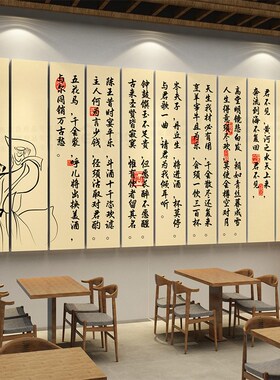 君不见，黄河之水天上来，
奔流到海不复回。君不见，
高堂明镜悲白发，朝如青丝暮成雪。
人生得意须尽欢，莫使金樽空对月。
天生我材必有用，千金散尽还复来。
烹羊宰牛且为乐，会须一饮三百杯。
岑夫子，丹丘生，将进酒，杯莫停。
与君歌一曲，请君为我倾耳听。
钟鼓馔玉不足贵，但愿长醉不愿醒。
古来圣贤皆寂寞，惟有饮者留其名。
陈王昔时宴平乐，斗酒十千恣欢谑。
主人何为言少钱，径须沽取对君酌。
五花马，千金裘，呼儿将出换美酒，
与尔同销万古愁。